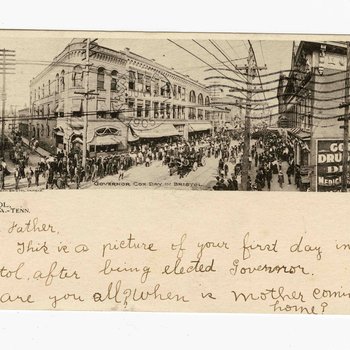 GOVERNOR COX DAY IN BRISTOL
GO
DRU
MEDICI
OL,
A.-TENN.
Father,
This is a picture of your first day in
tol, after being elected Governor.
are you all? When is Mother comin
home?